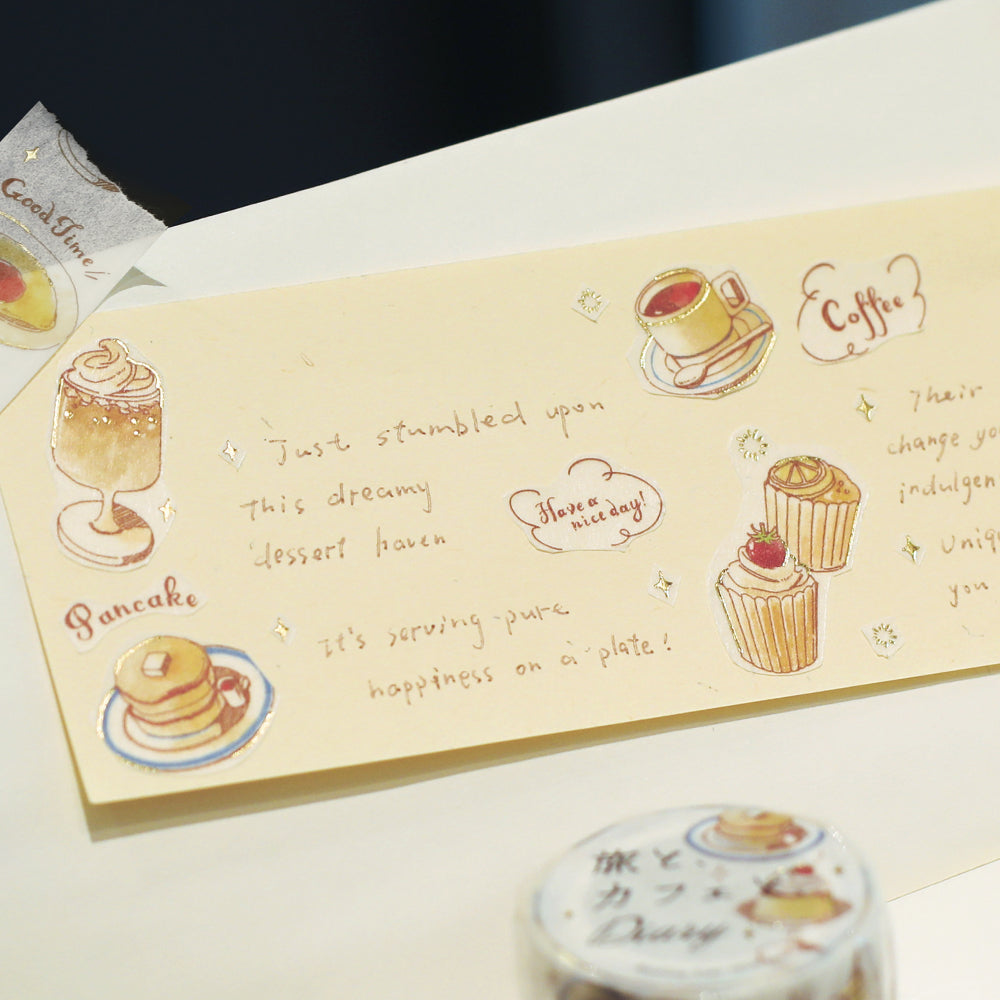 Good Time
Just stumbled upon
this dreamy
dessert haven
Have a
nice day!
Pancake
It's serving pure
happiness on a plate!
Coffee
Their
change
you
旅と
カフェと
Diary